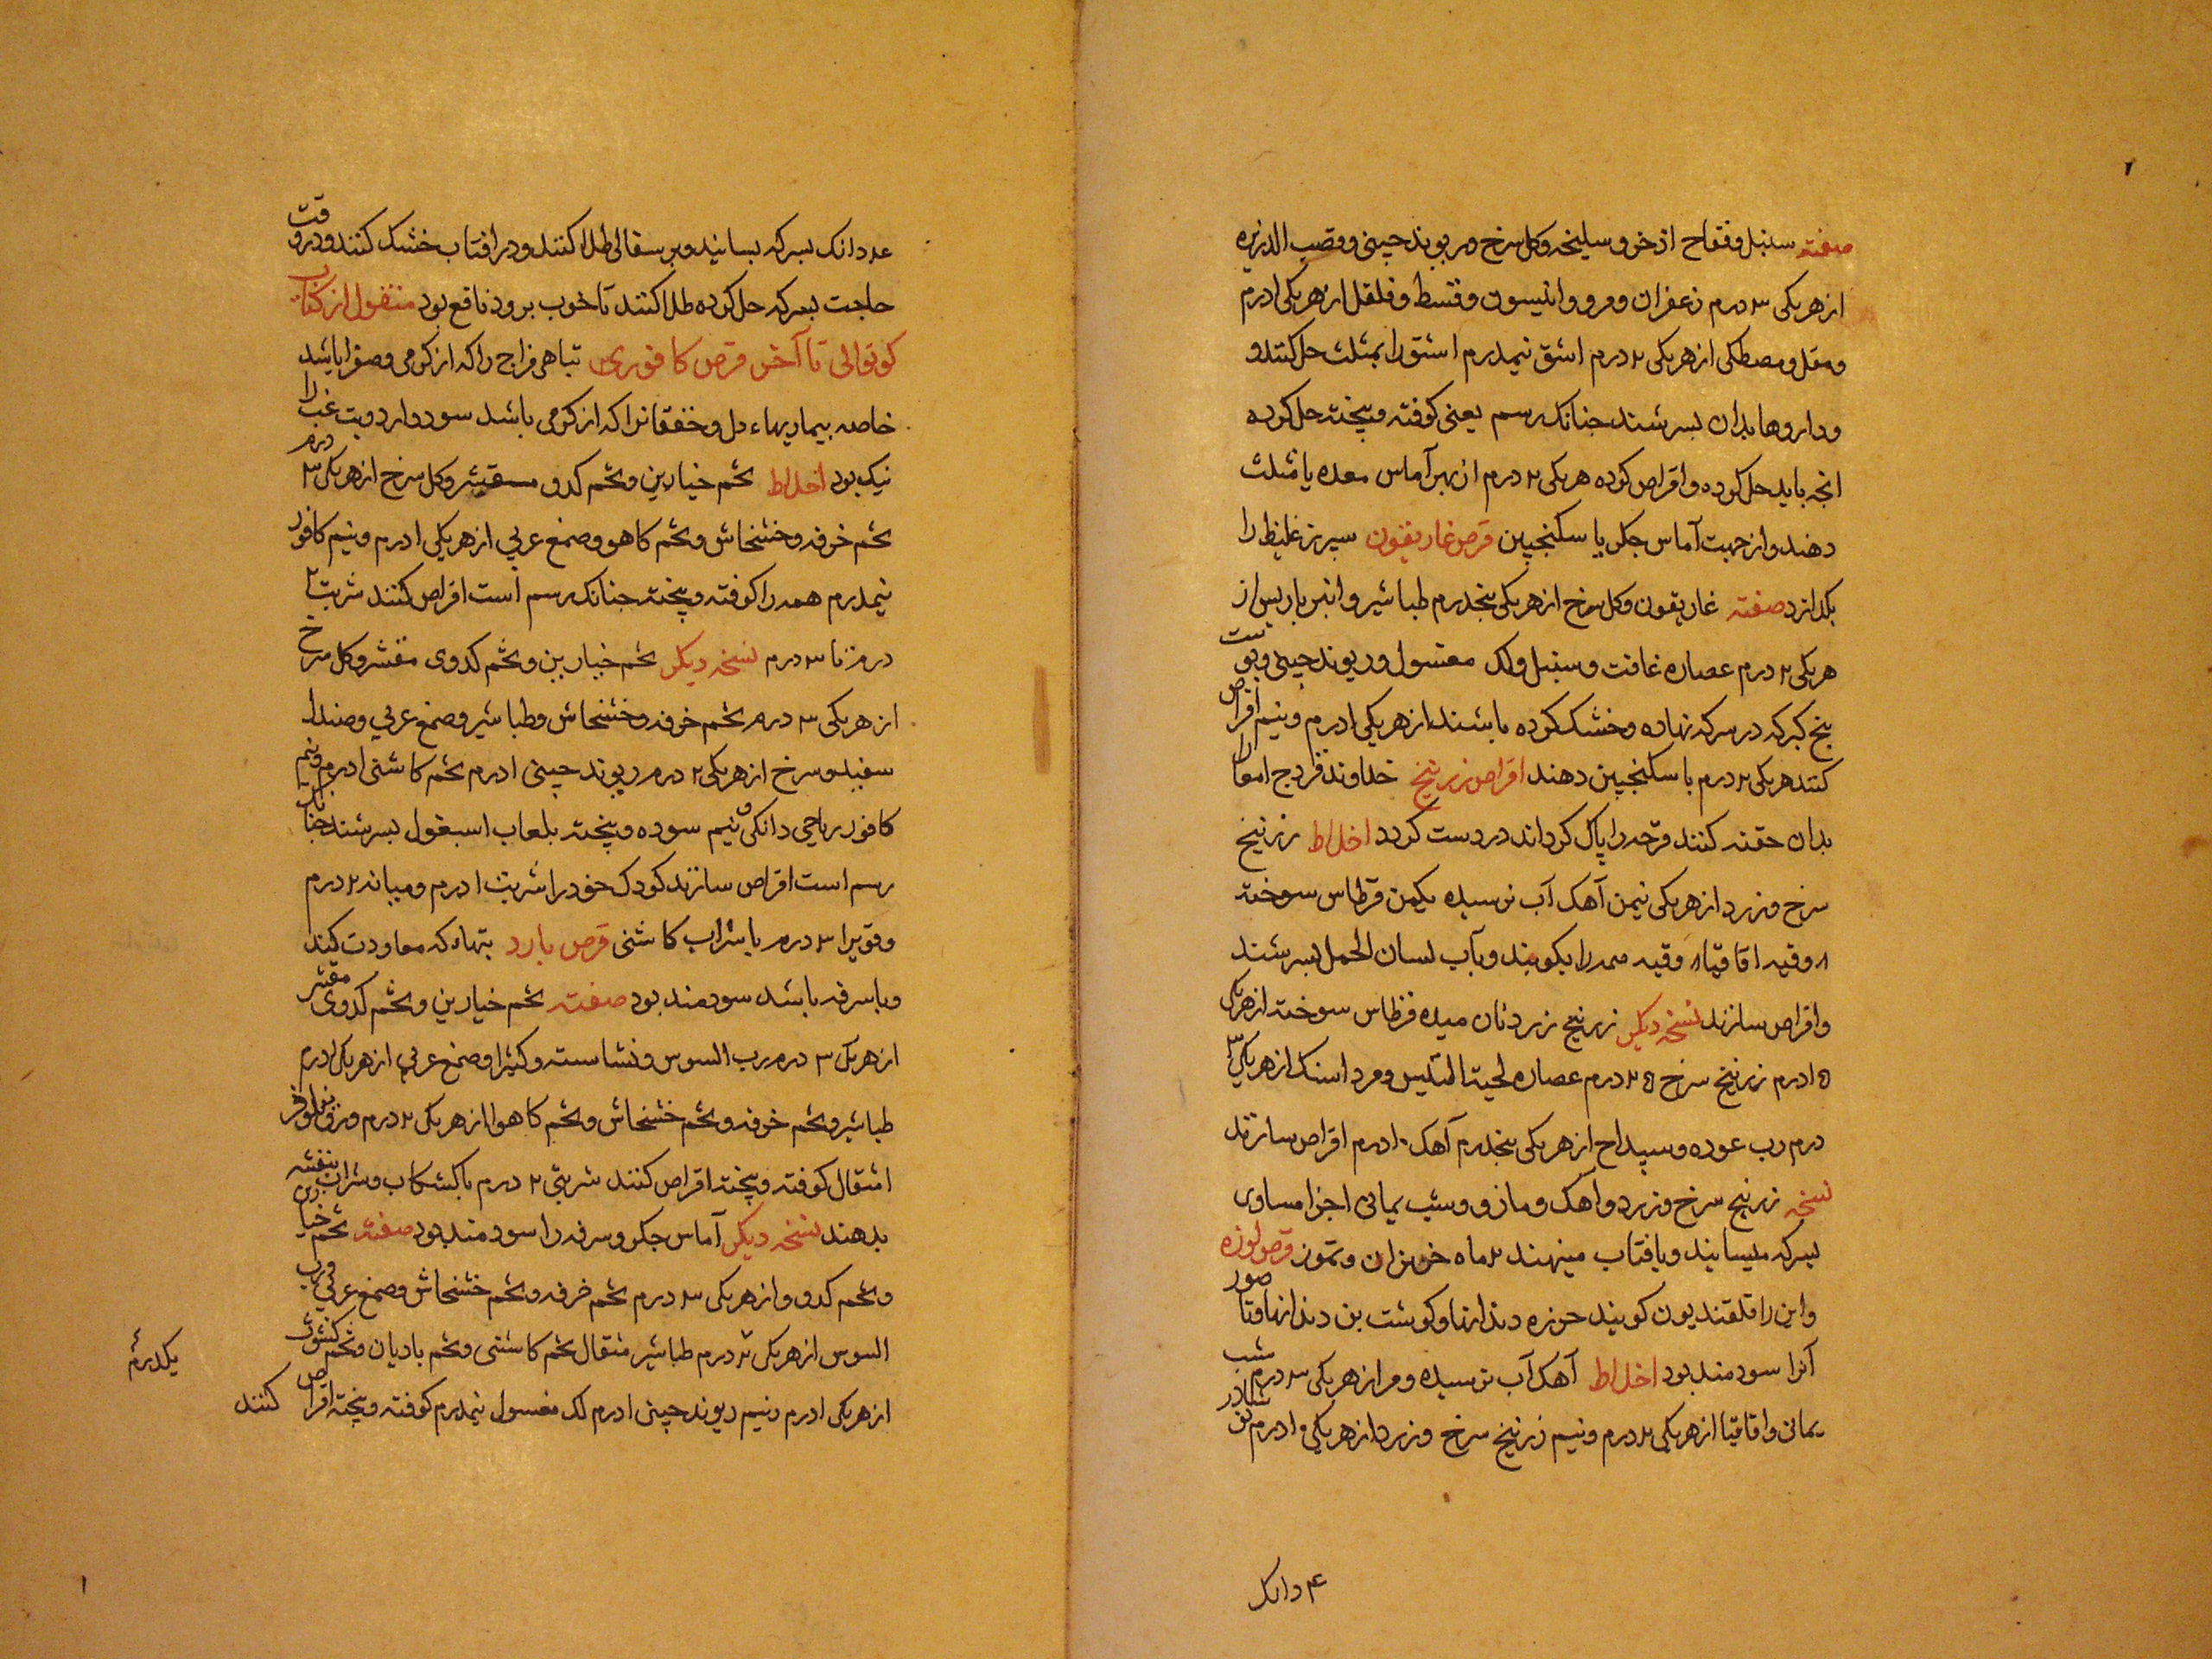 صفته سنبل و فقاح اذخر و سلیخه و کل سرخ و ریوند چینی و قصب الذریره
از هریکی ۳ درم زعفران و مرو و انیسون و قسط و فلفل از هریکی ا درم
و مقل و مصطکی از هریکی ۲ درم اشق نیمدرم اشق را بمثلث حل کنند و
و داروها بدان بسرشند جنانک رسم یعنی کوفته و بیخته حل کوده
انجه باید حل کوده و اقراص کوده هریکی ۲ درم از بهر آماس معده با مثلث
دهند و از جهت آماس جکر با سکنجبین قرص غاریقون سپرز غلیظ را
بکدازد صفته غاریقون و کل سرخ از هریکی پنجدرم طباشیر و انبرباریس از
هریکی ۲ درم عصاره غافت و سنبل و لک مغسول و ریوند چینی و پوست
بیخ کبر که در سرکه نهاده و خشک کوده باشند از هریکی ا درم و نیم اقراص
کنند هریکی ۲ درم با سکنجبین دهند اقراص زرنیخ خداوند قروح امعا را
بدان حقنه کنند قرحه را پاک کرداند و درست کردد اخلاط زرنیخ
سرخ و زرد از هریکی نیمن آهک آب نرسیده یکمن قرطاس سوخته
۸ وقیه اقاقیا ۸ وقیه همه را بکوبند و بآب لسان الحمل بسرشند
و اقراص سازند نسخه دیکر زرنیخ زرد نان میده قرطاس سوخته از هریکی
۱۵ درم زرنیخ سرخ ۲۵ درم عصاره لحیة التیس و مرداسنک از هریکی ۳
درم رب عوده و سپیداج از هریکی پنجدرم آهک ۱۰ درم اقراص سازند
نسخه زرنیخ سرخ و زرد و اهک و مازو و شب یمانی اجزا مساوی
بسرکه میسایند و بافتاب مینهند ۲ ماه حزیران و تموز قرص لوزه
و این را قلقندیون کویند خوره دندانها و کوشت بن دندانها و ناصور
آنرا سودمند بود اخلاط آهک آب نرسیده و مر از هریکی ۳ درم شب
یمانی و اقاقیا از هریکی ۲ درم و نیم زرنیخ سرخ و زرد از هریکی ا درم نوشادر
۴ دانک
عد دانک بسرکه بسایند و بر سفالی طلا کنند و در افتاب خشک کنند و در وقت
حاجت بسرکه حل کوده طلا کنند تا خوب برود نافع بود منقول از کتاب
کوتوالی تا آخر قرص کافوری تباهی مزاج را که از کرمی و صفرا باشد
خاصه بیماریهاء دل و خفقانرا که از کرمی باشد سود دارد و تب غب را
نیک بود اخلاط تخم خیارین و تخم کدو مقشر و کل سرخ از هریکی ۳ درم
تخم خرفه و خشخاش و تخم کاهو و صمغ عربی از هریکی ا درم و نیم کافور
نیمدرم همه را کوفته و بیخته جنانک رسم است اقراص کنند شربت ۲
درم تا ۳ درم نسخه دیکر تخم خیارین و تخم کدوی مقشر و کل سرخ
از هریکی ۳ درم تخم خرفه و خشخاش و طباشیر و صمغ عربی و صندل
سفید و سرخ از هریکی ۲ درم ریوند چینی ا درم تخم کاسنی ا درم و نیم
کافور ریاحی دانکی و نیم سوده و بیخته بلعاب اسبغول بسرشند جنانک
رسم است اقراص سازند کودک خورد را شربت ا درم و میانه ۲ درم
و قوی را ۳ درم با شراب کاسنی قرص بارد تبهاء که معاودت کند
و با سرفه باشد سودمند بود صفته تخم خیارین و تخم کدوی مقشر
از هریکی ۳ درم رب السوس و نشاسته و کتیرا و صمغ عربی از هریکی ا درم
طباشیر و تخم خرفه و تخم خشخاش و تخم کاهو از هریکی ۲ درم ورق نیلوفر
ا مثقال کوفته و بیخته اقراص کنند شربتی ۲ درم با کشکاب و شراب بنفشه
بدهند نسخه دیکر آماس جکر و سرفه را سودمند بود صفته تخم خیارین
و تخم کدو از هریکی ۳ درم تخم خرفه و تخم خشخاش و صمغ عربی و رب
السوس از هریکی ۲ درم طباشیر مثقال تخم کاسنی و تخم بادیان و تخم کشوث
از هریکی ا درم و نیم ریوند چینی ا درم لک مغسول نیمدرم کوفته و بیخته اقراص کنند
یکدرم